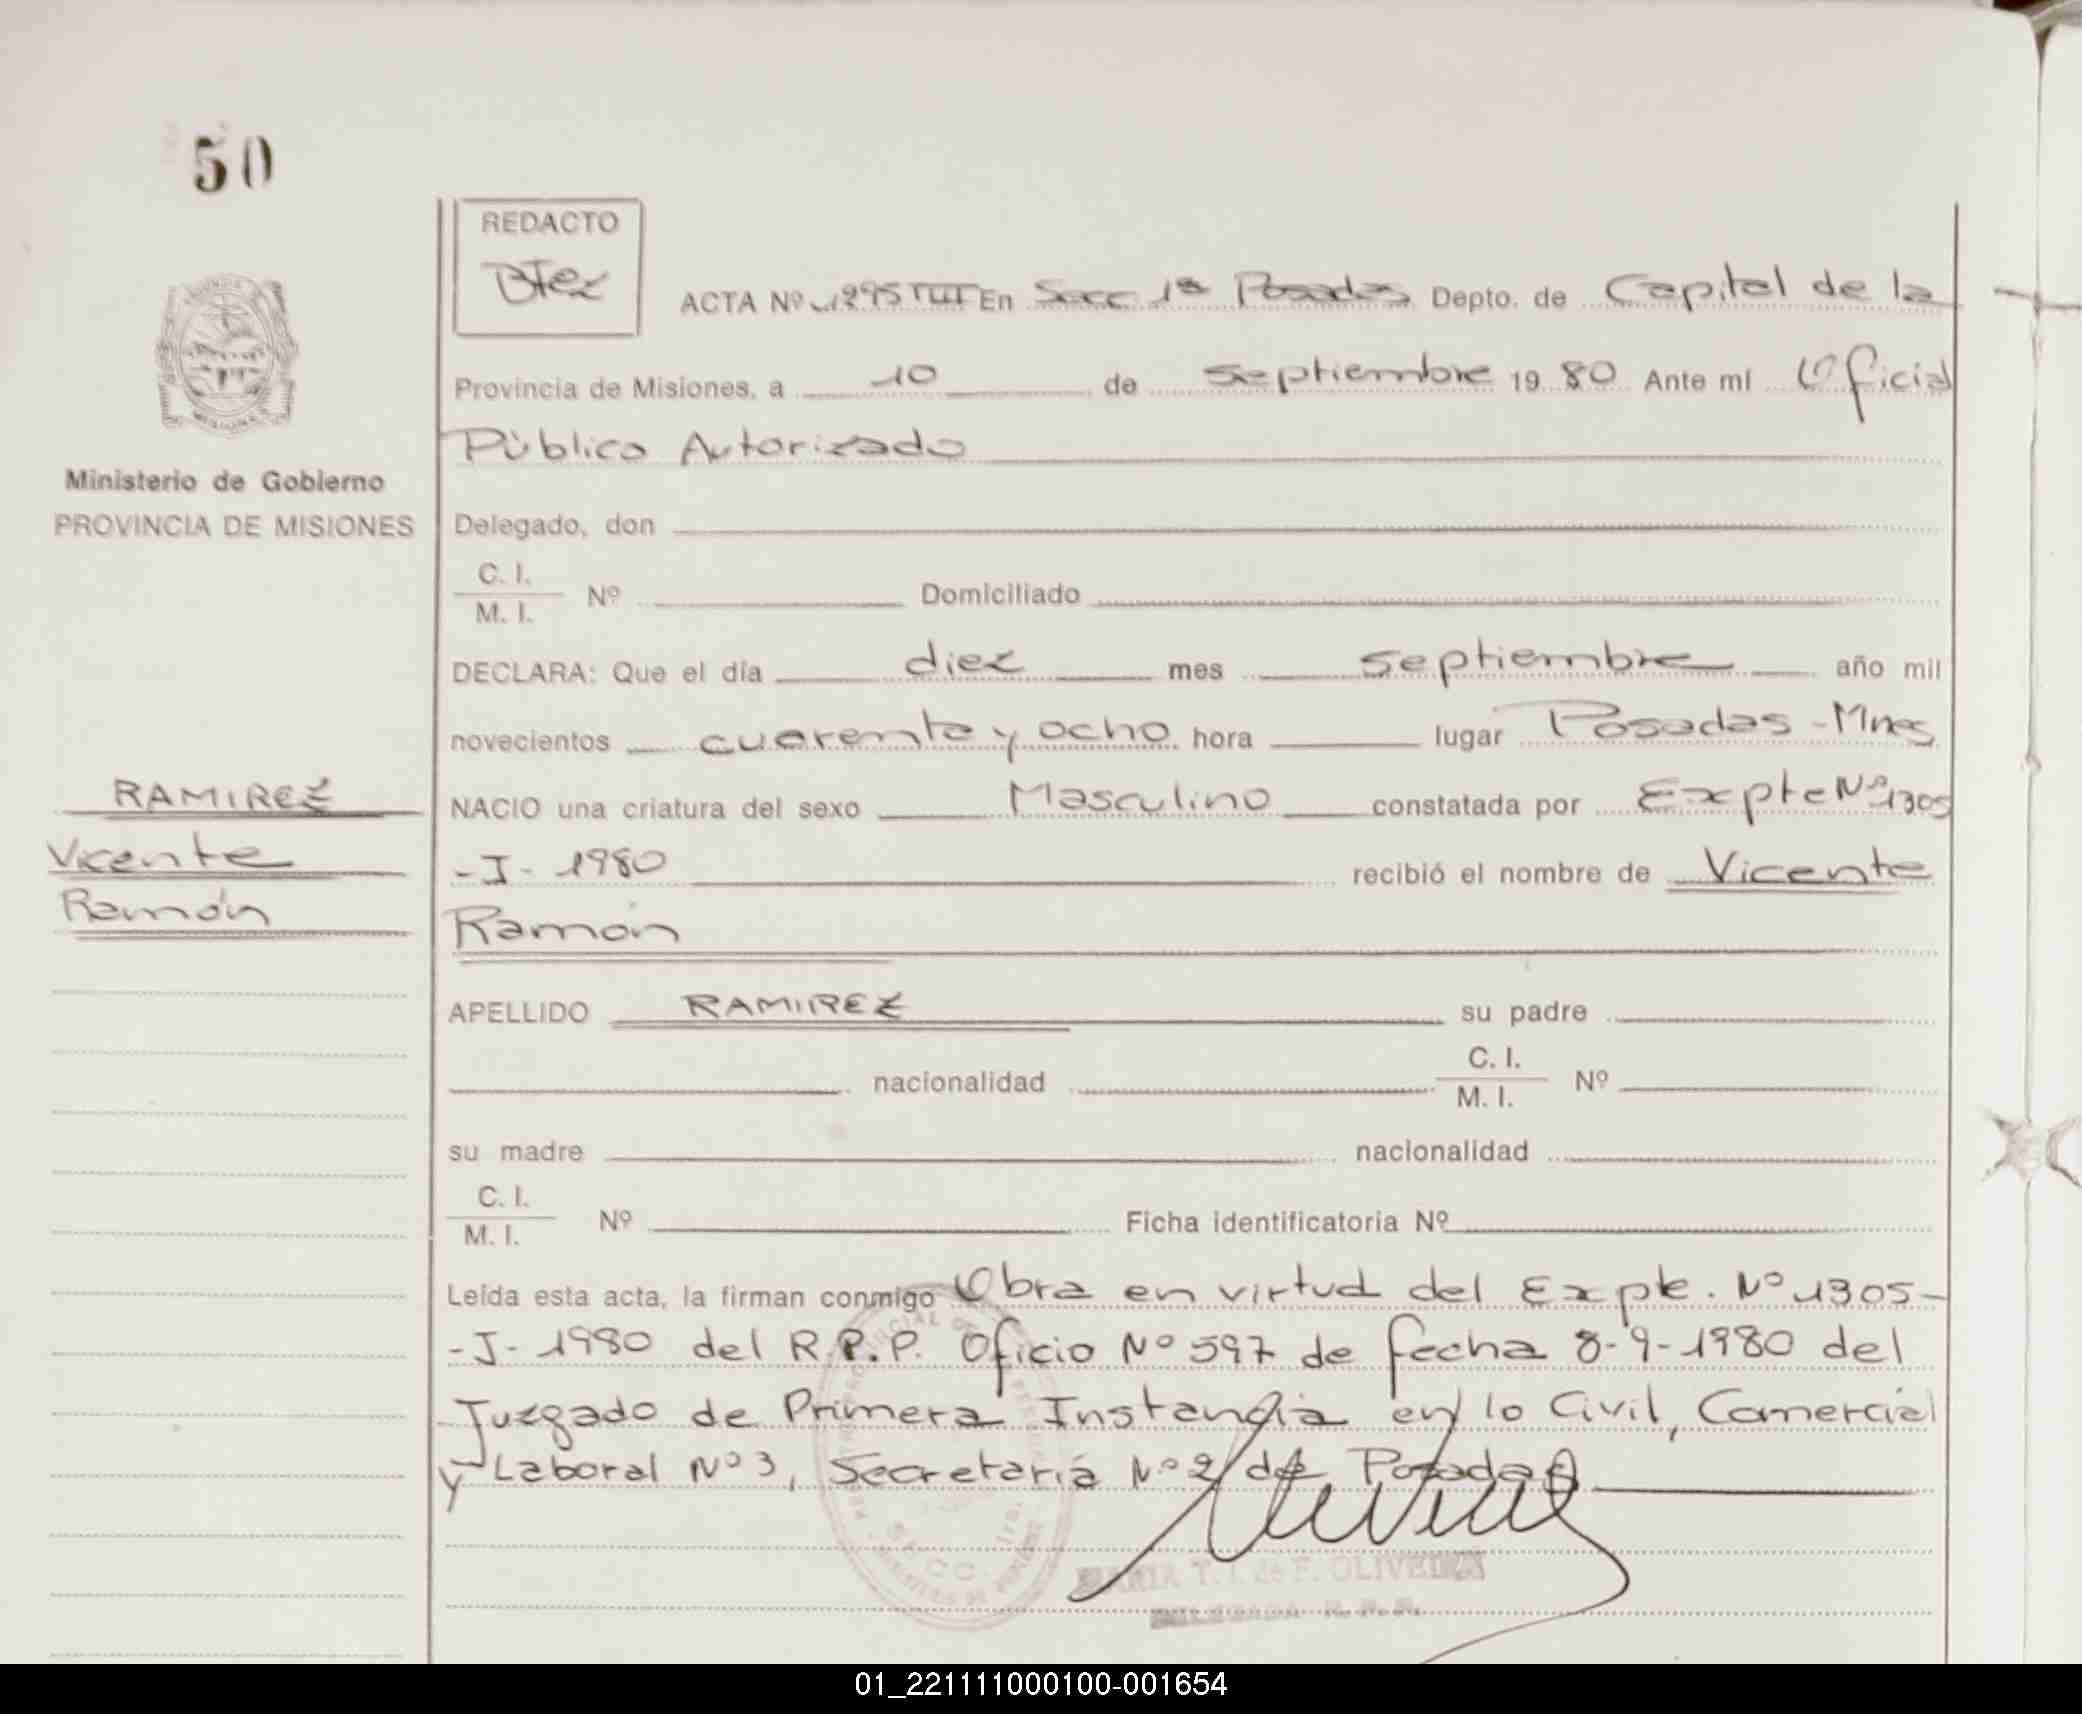 50
REDACTO
ACTA Nº 1295 TIII En Secc 1ª Posadas Depto. de Capital de la
Provincia de Misiones, a 10 de septiembre 19 80 Ante mí Oficial
Público Autorizado
Ministerio de Gobierno
PROVINCIA DE MISIONES
Delegado, don
C. I.
M. I. Nº Domiciliado
DECLARA: Que el día diez mes septiembre año mil
novecientos cuarenta y ocho hora lugar Posadas - Mnes
RAMIREZ
Vicente
Ramón
NACIO una criatura del sexo Masculino constatada por Expte Nº 1305
-I- 1980 recibió el nombre de Vicente
Ramón
APELLIDO RAMIREZ su padre
nacionalidad C. I.
M. I. Nº
su madre nacionalidad
C. I.
M. I. Nº Ficha identificatoria Nº
Leída esta acta, la firman conmigo Obra en virtud del Expte. Nº 1305-
-I- 1980 del R.P.P. Oficio Nº 597 de fecha 8-9-1980 del
Juzgado de Primera Instancia en lo Civil, Comercial
y Laboral Nº 3, Secretaría Nº 2 de Posadas
MARIA T. I. de F. OLIVEIRA
DELEGADA R. P. P.
01_221111000100-001654